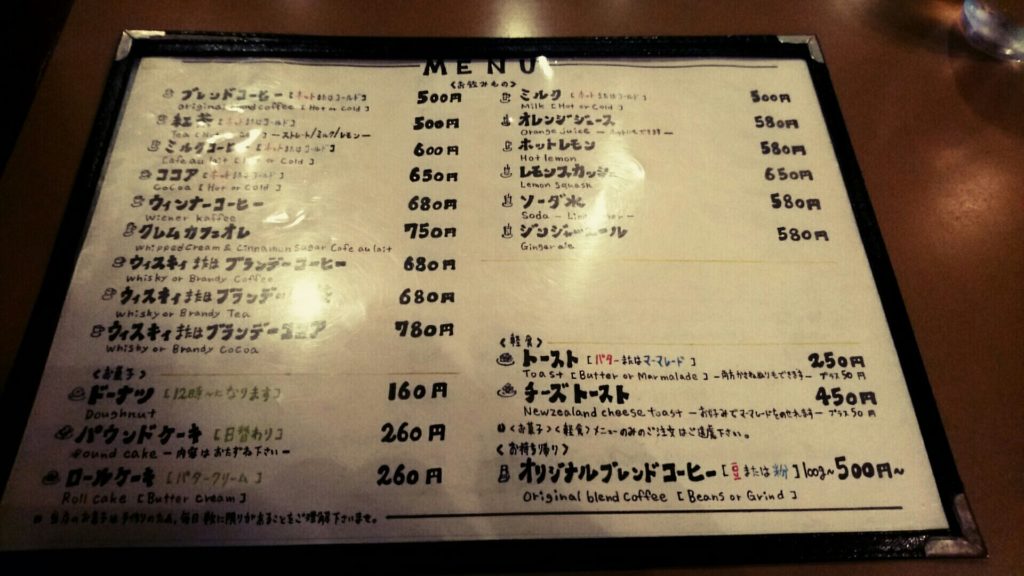 MENU
〈お飲みもの〉
ブレンドコーヒー [ホットまたはコールド] 500円
original blend coffee [Hot or Cold]
紅茶 [ホットまたはコールド] 500円
Tea [Hot or Cold] —ストレート/ミルク/レモン—
ミルクコーヒー [ホットまたはコールド] 600円
Cafe au lait [Hot or Cold]
ココア [ホットまたはコールド] 650円
Cocoa [Hot or Cold]
ウィンナーコーヒー 680円
Wiener kaffee
クレムカフェオレ 750円
Whipped Cream & Cinnamon Sugar Cafe au lait
ウィスキィまたはブランデーコーヒー 680円
Whisky or Brandy Coffee
ウィスキィまたはブランデー 680円
Whisky or Brandy Tea
ウィスキィまたはブランデーココア 780円
Whisky or Brandy Cocoa
〈お菓子〉
ドーナツ [12時〜になります] 160円
Doughnut
パウンドケーキ [日替わり] 260円
Pound cake —内容はおたずね下さい—
ロールケーキ [バタークリーム] 260円
Roll cake [Butter cream]
当店のお菓子は手作りのため、毎日数に限りがあることをご理解下さいませ。
ミルク [ホットまたはコールド] 500円
Milk [Hot or Cold]
オレンジジュース 580円
Orange juice —ホットもできます—
ホットレモン 580円
Hot lemon
レモンスカッシュ 650円
Lemon Squash
ソーダ水 580円
Soda
ジンジャーエール 580円
Ginger ale
〈軽食〉
トースト [バターまたはマーマレード] 250円
Toast [Butter or Marmalade] —両方かさねぬりもできます— プラス50円
チーズトースト 450円
Newzealand cheese toast —お好みでマーマレードをのせれます— プラス50円
〈お菓子〉〈軽食〉メニューのみのご注文はご遠慮下さい。
〈お持ち帰り〉
オリジナルブレンドコーヒー [豆または粉] 100g〜500円〜
Original blend Coffee [Beans or Grind]